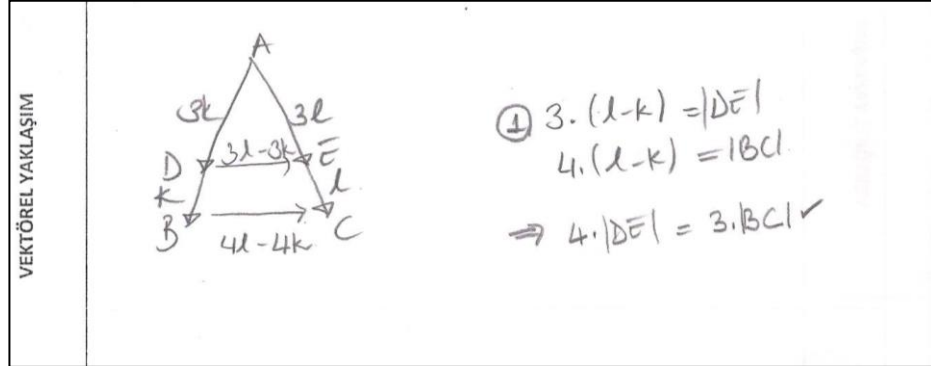 VEKTÖREL YAKLAŞIM
A
3k
3l
D
3l-3k
E
k
l
B
4l-4k
C
① 3.(l-k) = |DE|
4.(l-k) = |BC|
⇒ 4.|DE| = 3.|BC| ✓